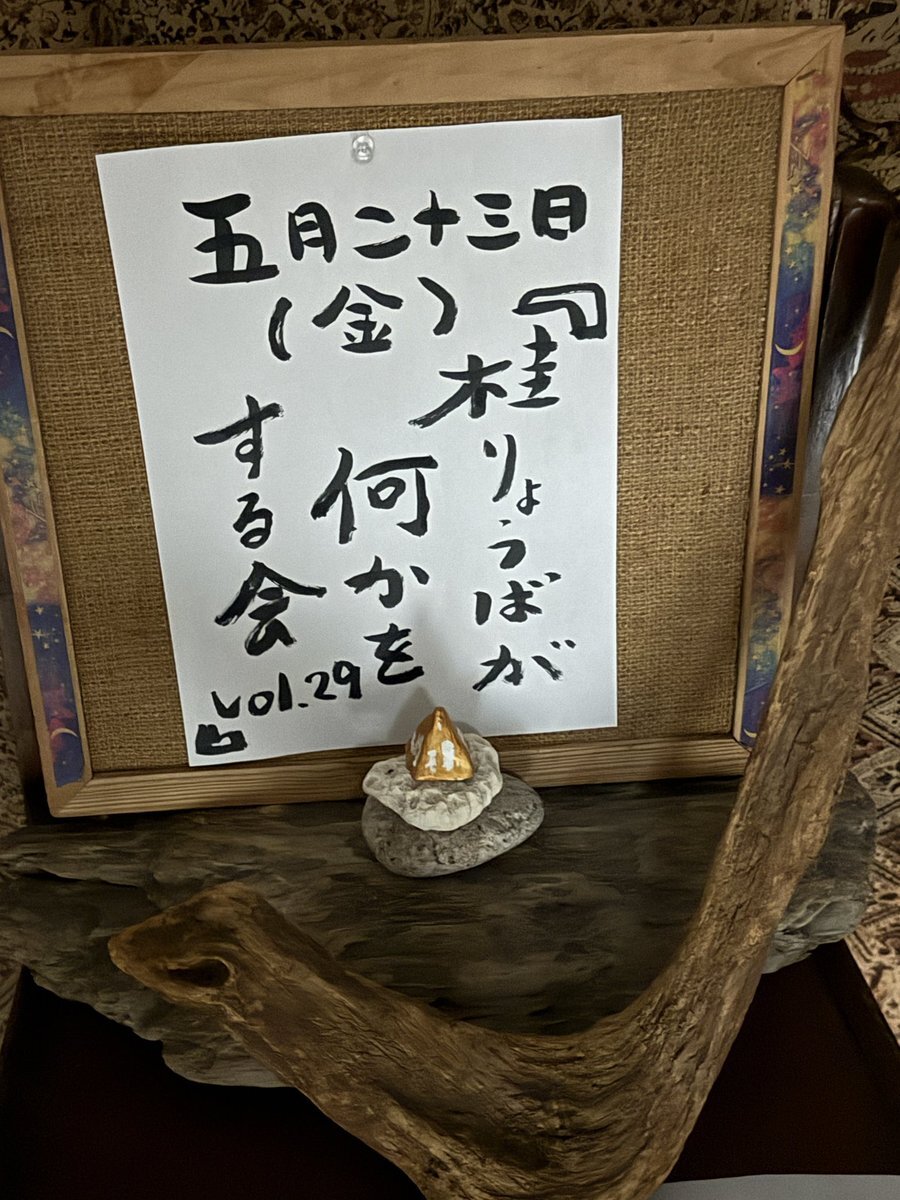 五月二十三日
（金）
『桂りょうばが
何かを
する会
vol.29』